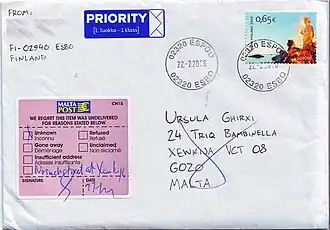 FROM:
FI-02940 ESBO
FINLAND
PRIORITY
[1. luokka - 1 klass]
02320 ESPOO
22.-2.2006
02320 ESBO
02320 ESPOO
02320 ESBO
0,65€
MALTA
POST
CN15
WE REGRET THIS ITEM WAS UNDELIVERED
FOR REASONS STATED BELOW
Unknown
Inconnu
Refused
Refusé
Gone away
Déménagé
Unclaimed
Non réclamé
Insufficient address
Adresse insuffisante
SIGNATURE
DATE
URSULA GHIRXI
24 TRIQ BAMBINELLA
XEWKIJA VCT 08
GOZO
MALTA